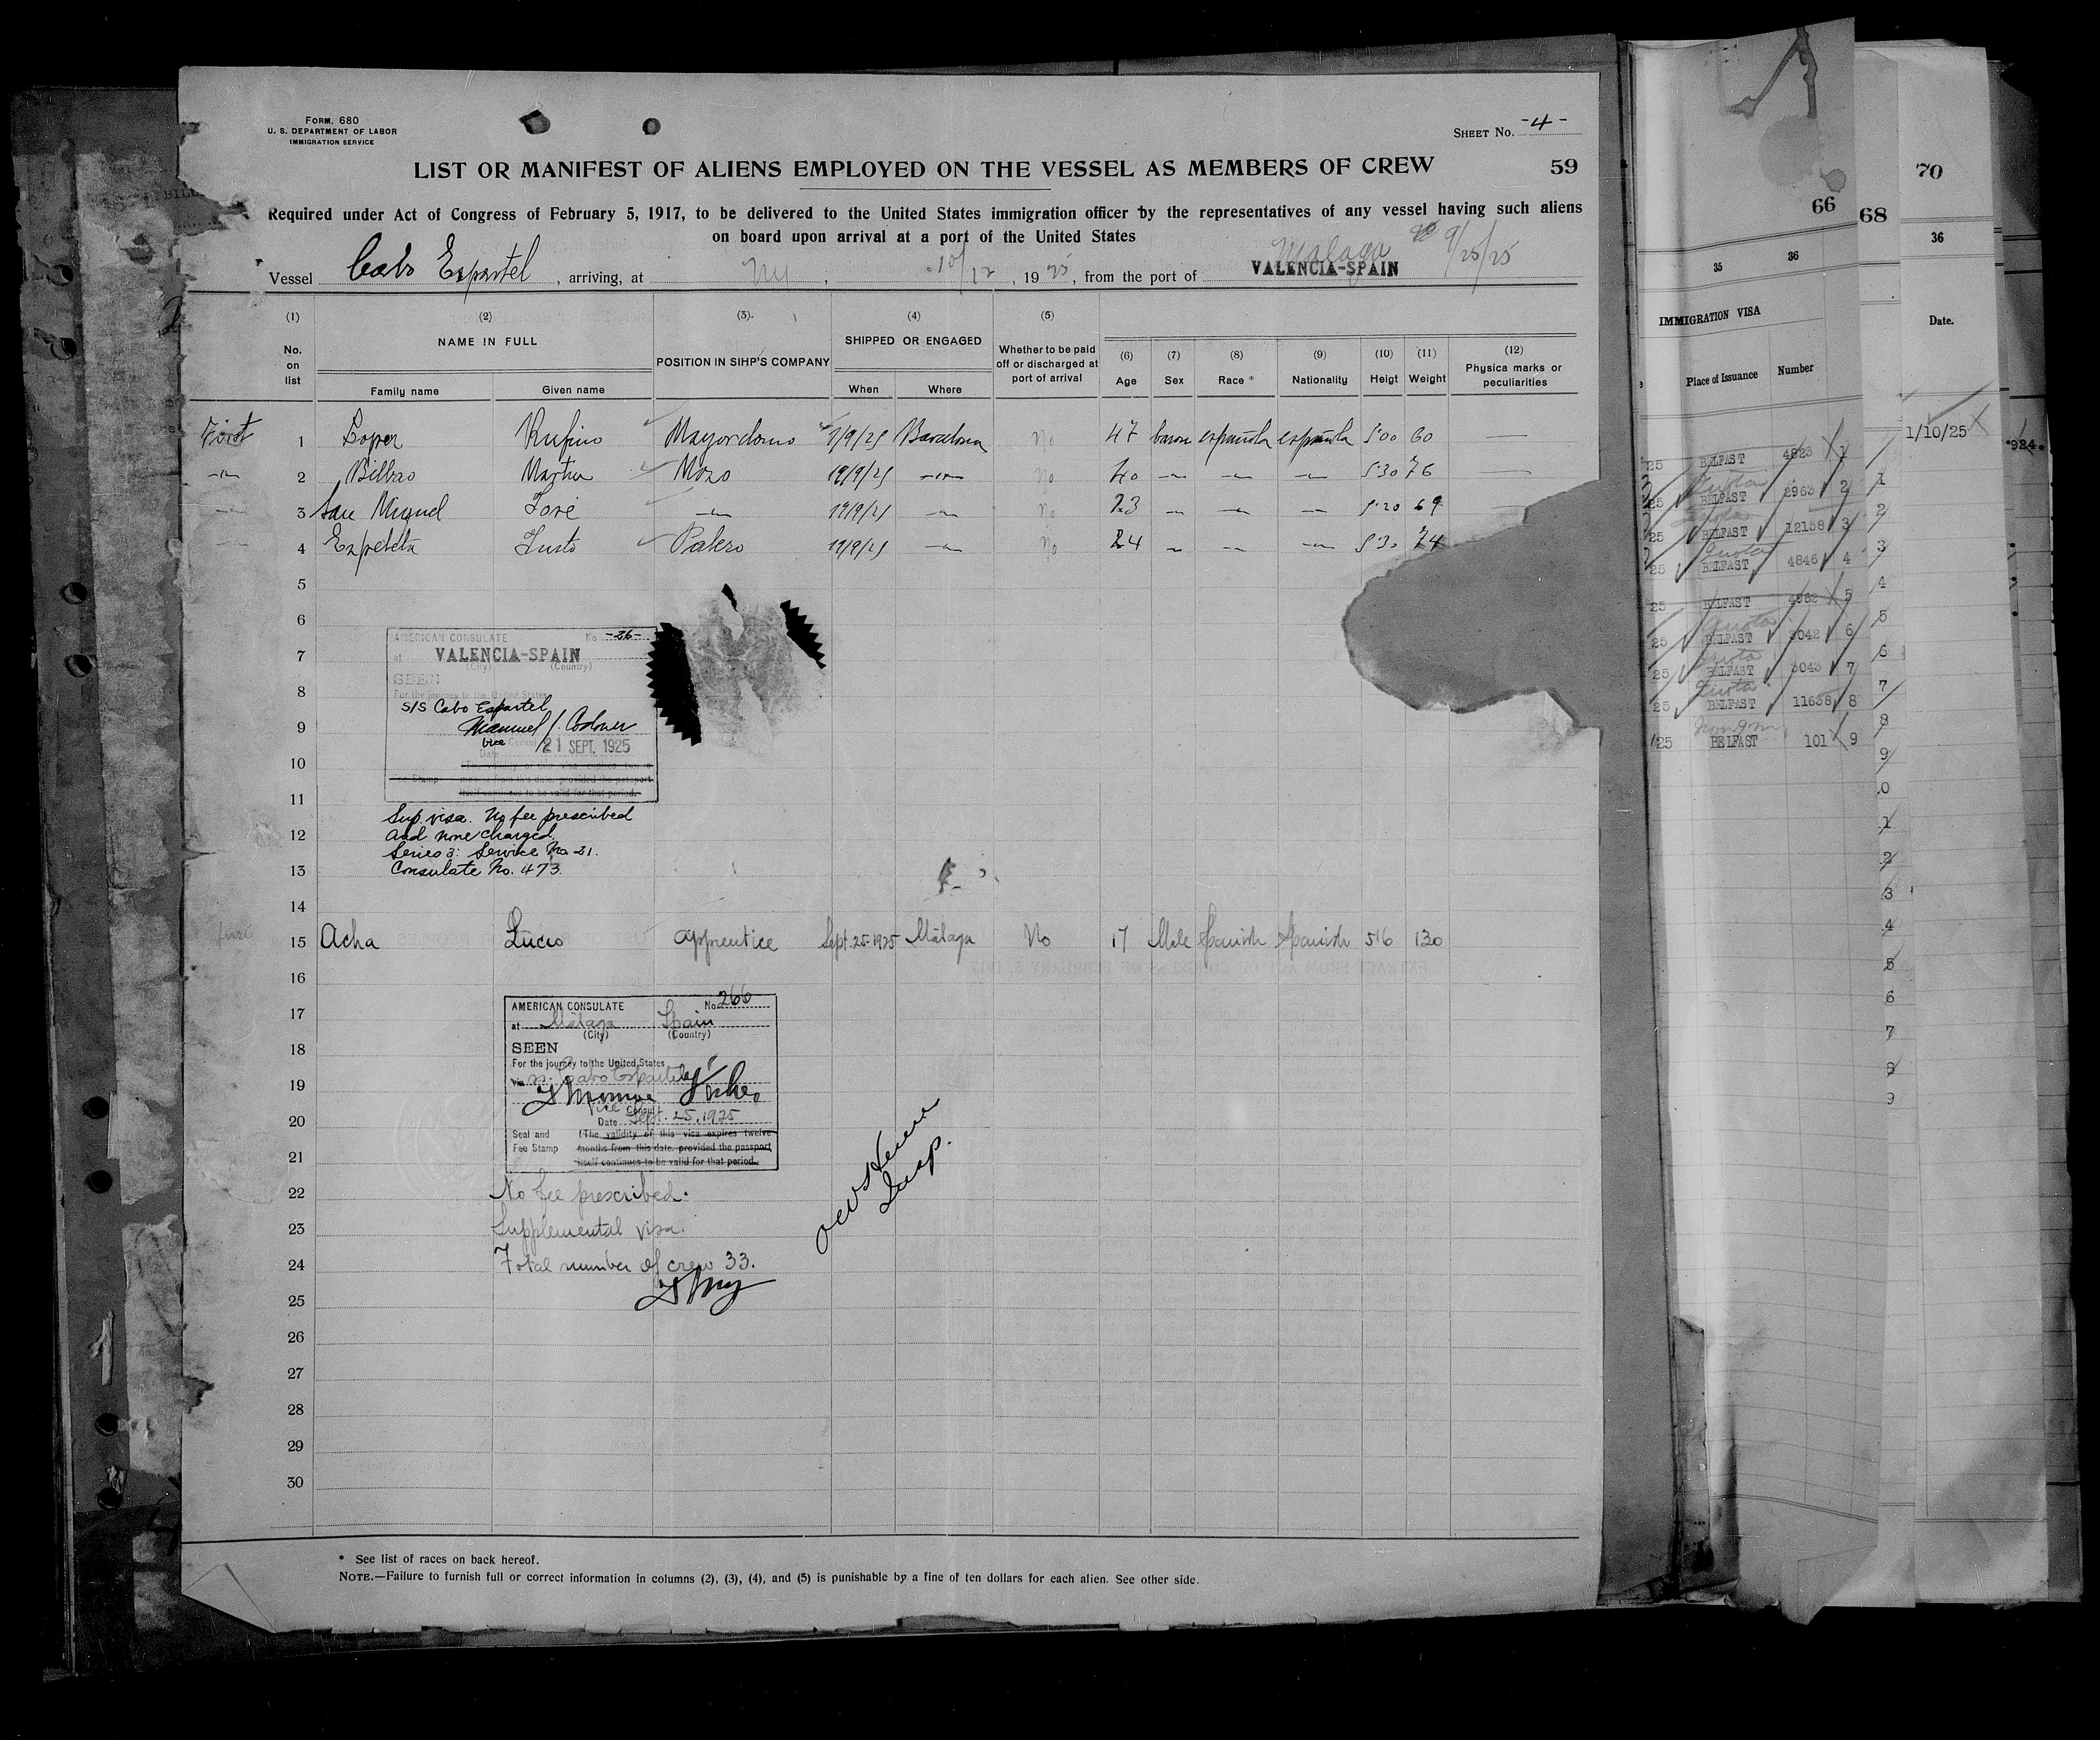 FORM. 680
U. S. DEPARTMENT OF LABOR
IMMIGRATION SERVICE
SHEET No. -4-
LIST OR MANIFEST OF ALIENS EMPLOYED ON THE VESSEL AS MEMBERS OF CREW 59
Required under Act of Congress of February 5, 1917, to be delivered to the United States immigration officer by the representatives of any vessel having such aliens
on board upon arrival at a port of the United States
Malaga 9/25/25
Vessel Cabo Espartel, arriving, at NY, 10/12, 1925, from the port of VALENCIA-SPAIN
(1) (2) (3). (4) (5)
No. on list
NAME IN FULL
POSITION IN SIHP'S COMPANY
SHIPPED OR ENGAGED
Whether to be paid off or discharged at port of arrival
(6) (7) (8) (9) (10) (11) (12)
Age Sex Race * Nationality Heigt Weight Physica marks or peculiarities
Family name Given name When Where
First 1 Lopez Rufino Mayordomo 1/9/25 Barcelona No 47 baron española española 5'00 60 —
-"- 2 Bilbao Martin Mozo 19/9/25 -"- No 40 -"- -"- -"- 5'30 76 —
-"- 3 San Miguel José -"- 19/9/25 -"- No 23 -"- -"- -"- 5'20 69 —
-"- 4 Ezpeleta Justo Palero 19/9/25 -"- No 24 -"- -"- -"- 74
5
6
7
8
9
10
11
12
13
14
AMERICAN CONSULATE No -26-
at VALENCIA-SPAIN
(City) (Country)
SEEN
For the journey to the United States
S/S Cabo Espartel
Manuel J. Codoner
Vice Consul
Date 21 SEPT. 1925
Fee Stamp months from this date, provided the passport
itself continues to be valid for that period.
Sup. visa. No fee prescribed
and none charged.
Series 3: Service No. 21.
Consulate No. 473.
first 15 Acha Lucio apprentice Sept. 25-1925 Málaga No 17 Male Spanish Spanish 5'6 130
16
17
18
19
20
21
22
23
24
25
26
27
28
29
30
AMERICAN CONSULATE No. 266
at Málaga Spain
(City) (Country)
SEEN
For the journey to the United States
via ss. Cabo Espartel
Vice Consul
Date Sept. 25, 1925
Seal and (The validity of this visa expires twelve
Fee Stamp months from this date, provided the passport
itself continues to be valid for that period.
No fee prescribed.
Supplemental visa.
Total number of crew 33.
Insp.
* See list of races on back hereof.
NOTE.—Failure to furnish full or correct information in columns (2), (3), (4), and (5) is punishable by a fine of ten dollars for each alien. See other side.
66
35 36
IMMIGRATION VISA
Place of Issuance Number
25 BELFAST 4823 1
Quota
25 BELFAST 2963 2
Quota
25 BELFAST 12158 3
Quota
25 BELFAST 4846 4
25 BELFAST 4962 5
Quota
25 BELFAST 3042 6
Quota
25 BELFAST 3043 7
Quota
25 BELFAST 11638 8
/25 BELFAST 101 9
68
1
2
3
4
5
6
7
8
9
0
1
2
3
4
5
6
7
8
9
70
36
Date.
1/10/25